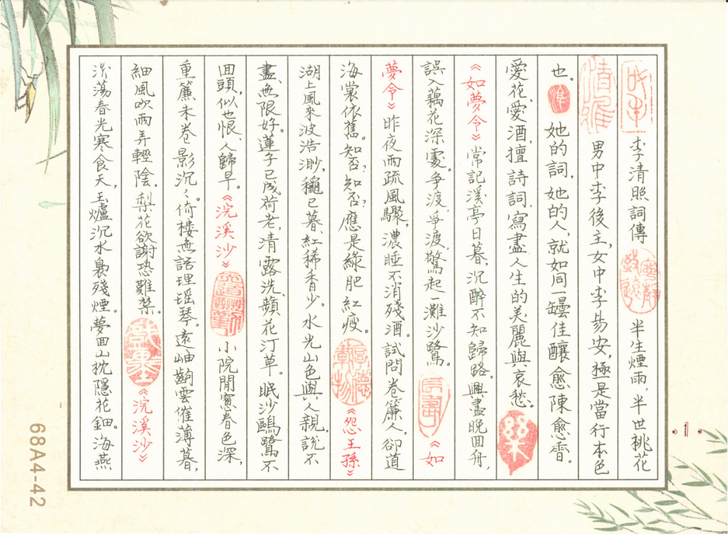 李清照詞傳 半生煙雨,半世桃花
男中李後主,女中李易安,極是當行本色
也。她的詞,她的人,就如同一罎佳釀,愈陳愈香。
愛花,愛酒,擅詩詞,寫盡人生的美麗與哀愁。
《如夢令》常記溪亭日暮,沉醉不知歸路。興盡晚回舟,
誤入藕花深處。爭渡,爭渡,驚起一灘沙鷺。《如
夢令》昨夜雨疏風驟,濃睡不消殘酒。試問卷簾人,卻道
海棠依舊。知否,知否,應是綠肥紅瘦。《怨王孫》
湖上風來波浩渺,穐已暮、紅稀香少。水光山色與人親,說不
盡、無限好。蓮子已成荷老,清露洗、蘋花汀草。眠沙鷗鷺不
回頭,似也恨、人歸早。《浣溪沙》小院閒窗春色深,
重簾未卷影沉沉。倚樓無語理瑤琴。遠岫齣雲催薄暮,
細風吹雨弄輕陰。梨花欲謝恐難禁。《浣溪沙》
淡蕩春光寒食天,玉爐沉水裊殘煙。夢回山枕隱花鈿。海燕
1
68A4-42